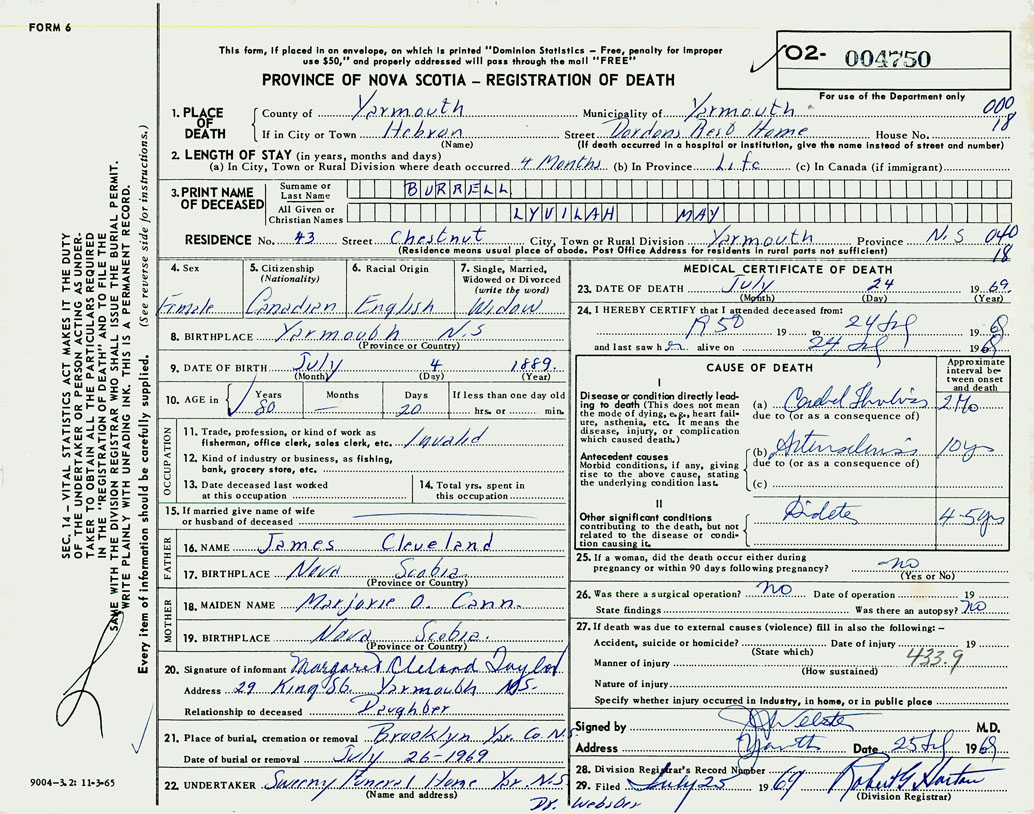 FORM 6
This form, if placed in an envelope, on which is printed "Dominion Statistics – Free, penalty for improper
use $50," and properly addressed will pass through the mail "FREE"
PROVINCE OF NOVA SCOTIA – REGISTRATION OF DEATH
02- 004750
For use of the Department only
SEC. 14 – VITAL STATISTICS ACT MAKES IT THE DUTY
OF THE UNDERTAKER OR PERSON ACTING AS UNDER-
TAKER TO OBTAIN ALL THE PARTICULARS REQUIRED
IN THE "REGISTRATION OF DEATH" AND TO FILE THE
SAME WITH THE DIVISION REGISTRAR WHO SHALL ISSUE THE BURIAL PERMIT.
WRITE PLAINLY WITH UNFADING INK. THIS IS A PERMANENT RECORD.
Every item of information should be carefully supplied. (See reverse side for instructions.)
1. PLACE OF DEATH County of Yarmouth Municipality of Yarmouth 000
If in City or Town Hebron Street Dordons Rest Home House No. 18
(Name) (If death occurred in a hospital or institution, give the name instead of street and number)
2. LENGTH OF STAY (in years, months and days)
(a) In City, Town or Rural Division where death occurred 4 Months (b) In Province Life (c) In Canada (if immigrant)
3. PRINT NAME OF DECEASED Surname or Last Name BURRELL
All Given or Christian Names LYVILAH MAY
RESIDENCE No. 43 Street Chestnut City, Town or Rural Division Yarmouth Province N.S 040
(Residence means usual place of abode. Post Office Address for residents in rural parts not sufficient) 18
4. Sex 5. Citizenship (Nationality) 6. Racial Origin 7. Single, Married, Widowed or Divorced (write the word)
Female Canadian English Widow
8. BIRTHPLACE Yarmouth N.S
(Province or Country)
9. DATE OF BIRTH July 4 1889.
(Month) (Day) (Year)
10. AGE in Years Months Days If less than one day old
80 — 20 hrs. or min.
OCCUPATION
11. Trade, profession, or kind of work as fisherman, office clerk, sales clerk, etc. Invalid
12. Kind of industry or business, as fishing, bank, grocery store, etc.
13. Date deceased last worked at this occupation
14. Total yrs. spent in this occupation
15. If married give name of wife or husband of deceased
FATHER
16. NAME James Cleveland
17. BIRTHPLACE Nova Scotia.
(Province or Country)
MOTHER
18. MAIDEN NAME Marjorie O. Cann.
19. BIRTHPLACE Nova Scotia.
(Province or Country)
20. Signature of informant Margaret Cleland Taylor
Address 29 King St. Yarmouth N.S.
Relationship to deceased Daughter
21. Place of burial, cremation or removal Brooklyn Yar. Co N.S
Date of burial or removal July 26-1969
22. UNDERTAKER Sweeny Funeral Home Yar. N.S
(Name and address)
Dr. Webster
9004-3.2: 11-3-65
MEDICAL CERTIFICATE OF DEATH
23. DATE OF DEATH July 24 1969.
(Month) (Day) (Year)
24. I HEREBY CERTIFY that I attended deceased from:
1950 19 to 24 Jul 69
and last saw her alive on 24 Jul 1969
CAUSE OF DEATH
Approximate interval between onset and death
I
Disease or condition directly leading to death (This does not mean the mode of dying, e.g., heart failure, asthenia, etc. It means the disease, injury, or complication which caused death.)
(a) 2 Mo
due to (or as a consequence of)
Antecedent causes
Morbid conditions, if any, giving rise to the above cause, stating the underlying condition last.
(b) 10 yrs
due to (or as a consequence of)
(c)
II
Other significant conditions contributing to the death, but not related to the disease or condition causing it. 4-5 yrs
25. If a woman, did the death occur either during pregnancy or within 90 days following pregnancy? no
(Yes or No)
26. Was there a surgical operation? no Date of operation 19
State findings Was there an autopsy? no
27. If death was due to external causes (violence) fill in also the following: –
Accident, suicide or homicide? Date of injury 19
(State which) 433.9
Manner of injury
(How sustained)
Nature of injury
Specify whether injury occurred in industry, in home, or in public place
Signed by Webster M.D.
Address Yarmouth Date 25 Jul 1969
28. Division Registrar's Record Number
29. Filed July 25 1969 Robert G Horton
(Division Registrar)